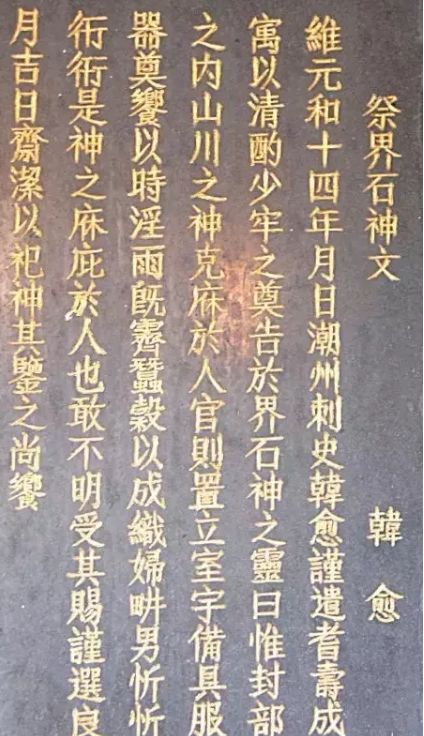 祭界石神文 韓愈
維元和十四年月日潮州刺史韓愈謹遣耆壽成
寓以清酌少牢之奠告於界石神之靈曰惟封部
之內山川之神克庥於人官則置立室宇備具服
器奠饗以時淫雨既霽蠶穀以成織婦畊男忻忻
衎衎是神之庥庇於人也敢不明受其賜謹選良
月吉日齋潔以祀神其鑒之尚饗